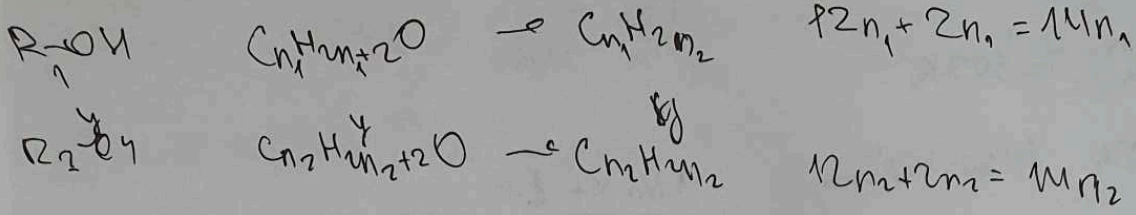 R₁-OH Cₙ₁H₂ₙ₁₊₂O → Cₙ₁H₂ₙ₂ 12n₁ + 2n₁ = 14n₁
y y
R₂-OH Cₙ₂H₂ₙ₂₊₂O → Cₙ₂H₂ₙ₂ 12n₂+2n₂ = 14n₂